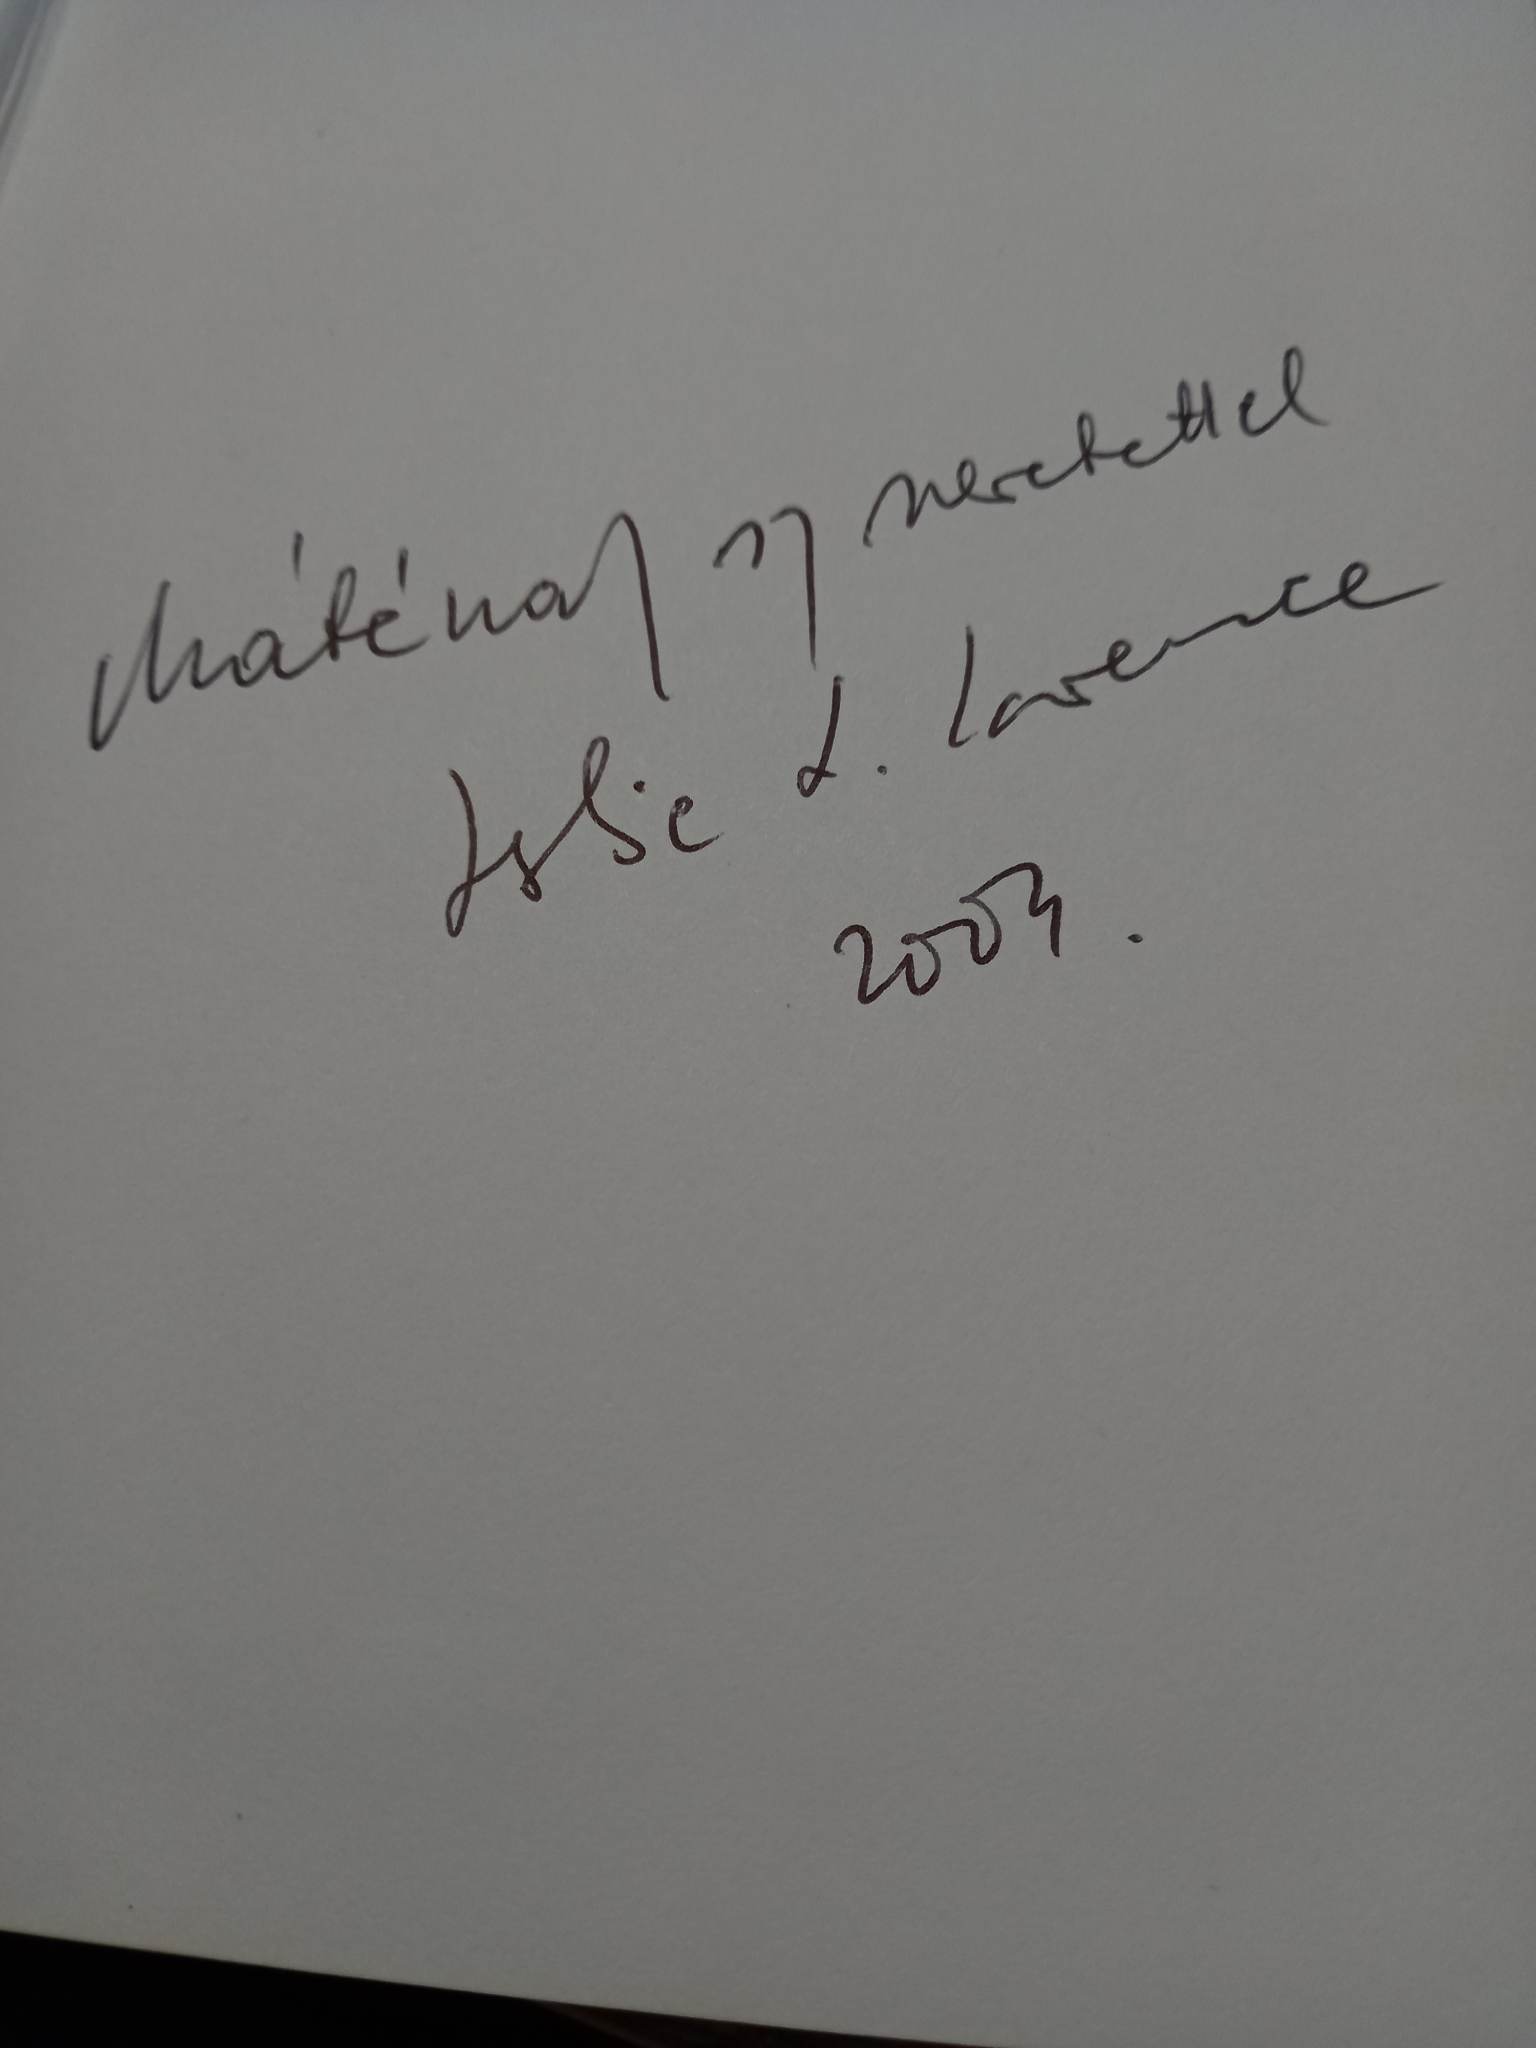 Máténak szeretettel
Leslie L. Lawrence
2003.